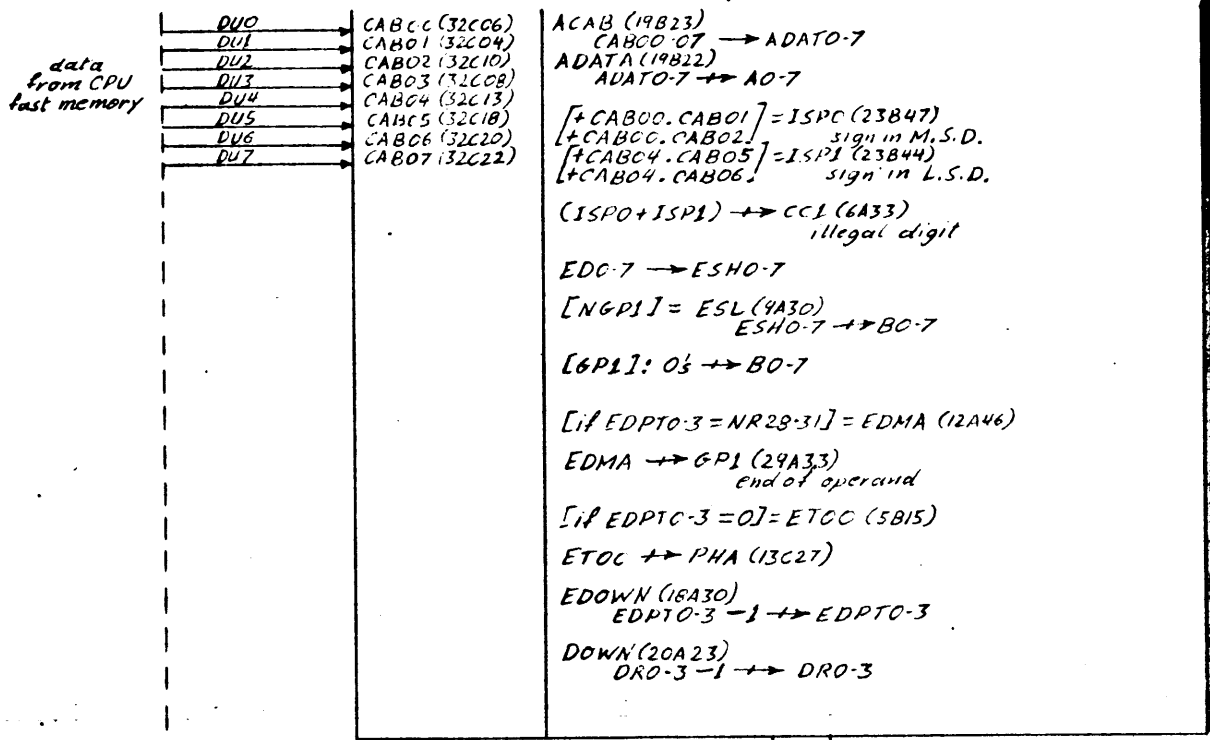 data
from CPU
fast memory
DU0
DU1
DU2
DU3
DU4
DU5
DU6
DU7
CAB00 (32C06)
CAB01 (32C04)
CAB02 (32C10)
CAB03 (32C08)
CAB04 (32C13)
CAB05 (32C18)
CAB06 (32C20)
CAB07 (32C22)
ACAB (19B23)
CAB00-07 → ADAT0-7
ADATA (19B22)
ADAT0-7 ↛ A0-7
[+CAB00.CAB01
+CAB00.CAB02] = ISP0 (23B47)
sign in M.S.D.
[+CAB04.CAB05
+CAB04.CAB06] = ISP1 (23B44)
sign in L.S.D.
(ISP0+ISP1) ↛ CC1 (6A33)
illegal digit
ED0-7 → ESH0-7
[NGP1] = ESL (9A30)
ESH0-7 ↛ B0-7
[GP1]: 0's ↛ B0-7
[if EDPT0-3 = NR28-31] = EDMA (12A46)
EDMA ↛ GP1 (29A33)
end of operand
[if EDPT0-3 = 0] = ETOC (5B15)
ETOC ↛ PHA (13C27)
EDOWN (18A30)
EDPT0-3 -1 ↛ EDPT0-3
DOWN (20A23)
DR0-3 -1 ↛ DR0-3